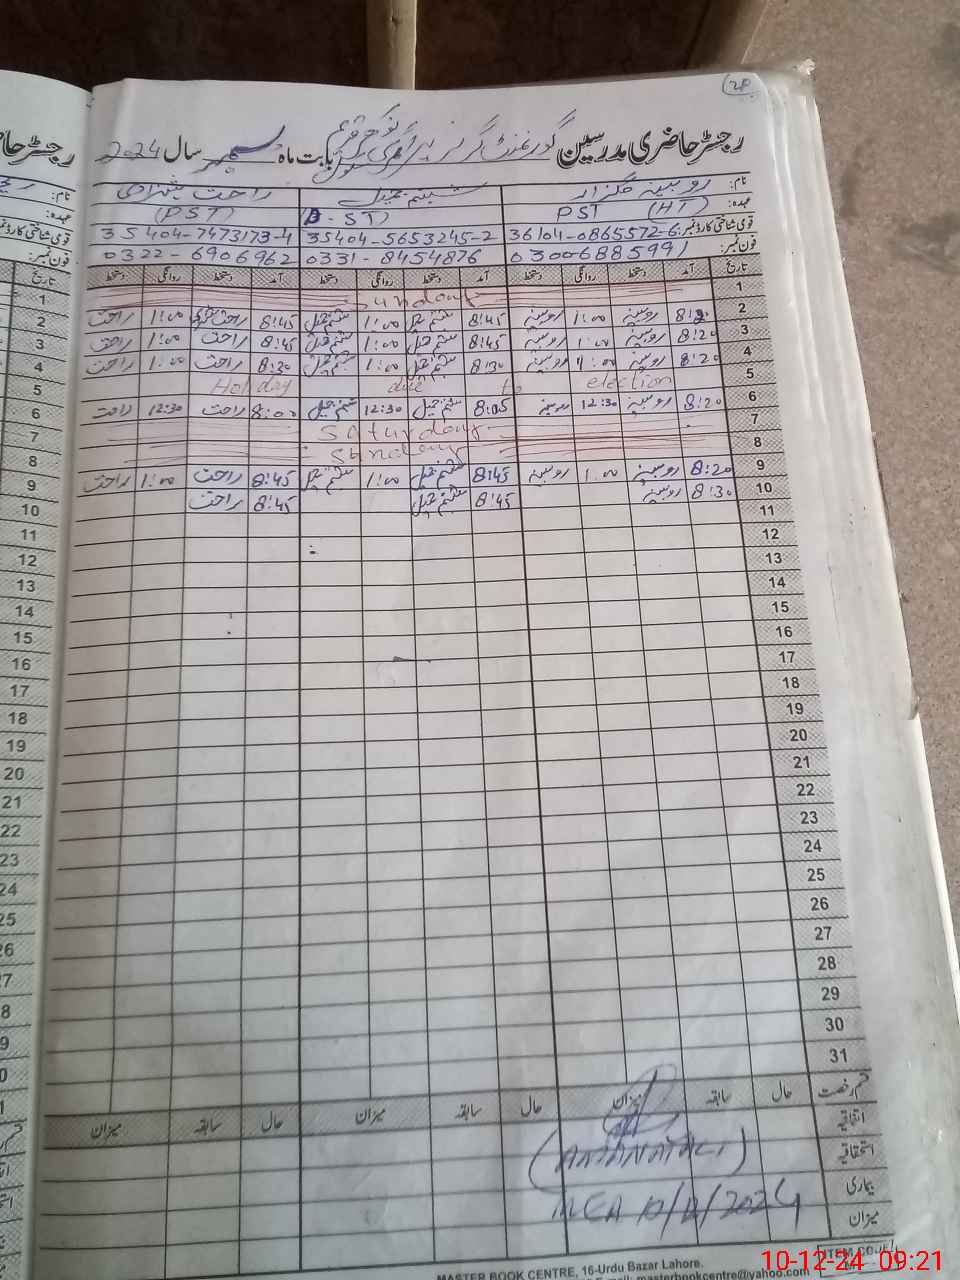 28
رجسٹر حاضری مدرسین گورنمنٹ گرلز پرائمری سکول بابت ماہ دسمبر سال 2024
نام: روبینہ گلزار شبنم جمیل راحت
عہدہ: PST (HT) (ST) (PST)
قومی شناختی کارڈ نمبر: 36104-0865572-6 35404-5653245-2 35404-7473173-4
فون نمبر: 03006885991 0331-8454876 0322-6906962
تاریخ آمد دستخط روانگی دستخط آمد دستخط روانگی دستخط آمد دستخط روانگی دستخط
1 Sunday
2 8:20 روبینہ 1:00 روبینہ 8:45 شبنم جمیل 1:00 شبنم جمیل 8:45 راحت 1:00 راحت
3 8:20 روبینہ 1:00 روبینہ 8:45 شبنم جمیل 1:00 شبنم جمیل 8:45 راحت 1:00 راحت
4 8:20 روبینہ 1:00 روبینہ 8:30 شبنم جمیل 1:00 شبنم جمیل 8:30 راحت 1:00 راحت
5 Holiday due to election
6 8:20 روبینہ 12:30 روبینہ 8:05 شبنم جمیل 12:30 شبنم جمیل 8:00 راحت 12:30 راحت
7 Saturday
8 Sunday
9 8:20 روبینہ 1:00 روبینہ 8:45 شبنم جمیل 1:00 شبنم جمیل 8:45 راحت 1:00 راحت
10 8:30 روبینہ 8:45 شبنم جمیل 8:45 راحت
11
12
13
14
15
16
17
18
19
20
21
22
23
24
25
26
27
28
29
30
31
قسم رخصت حال سابقہ میزان حال سابقہ میزان حال سابقہ میزان
اتفاقیہ
استحقاقیہ
(AMANAT ALI)
بیماری
MEA 10/12/2024
میزان
MASTER BOOK CENTRE, 16-Urdu Bazar Lahore.
E-mail: masterbookcentre@yahoo.com
ITEM CODE
10-12-24 09:21